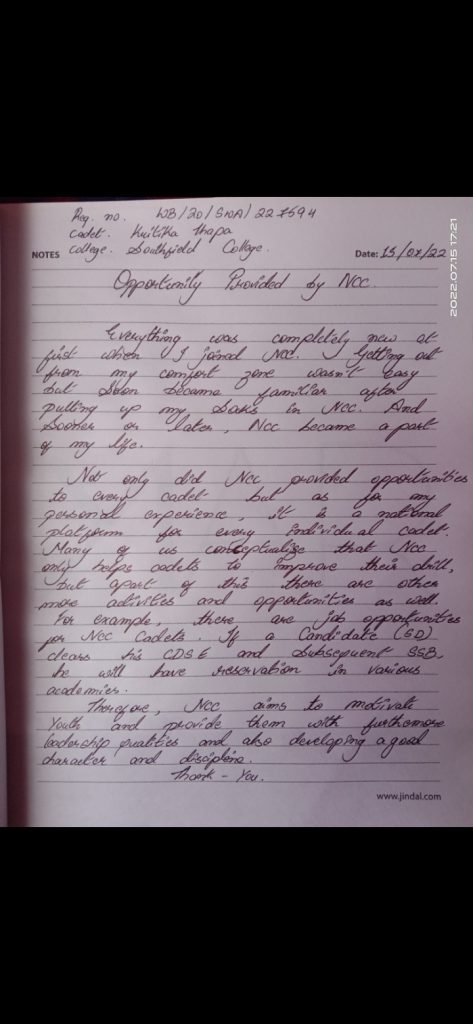 Reg. no. WB/20/SWA/227594
Cadet. Kritika Thapa
College. Southfield College.
NOTES
Date: 15/07/22
2022.07.15 17:21
Opportunity Provided by NCC.
Everything was completely new at
first when I joined NCC. Getting out
from my comfort zone wasn't easy
but soon became familier after
putting up my basis in NCC. And
Sooner or later, NCC became a part
of my life.
Not only did NCC provided opportunities
to every cadet but as for my
personal experience, it is a national
platform for every individual cadet.
Many of us conceptualize that NCC
only helps cadets to improve their drill,
but apart of this there are other
more activities and opportunities as well.
For example, there, are job opportunities
for NCC Cadets. If a Candidate (SD)
clears his CDSE and subsequent SSB,
he will have reservation in various
academies.
Therefore, NCC aims to motivate
Youth and provide them with furthermore
leadership qualities and also developing a good
character and discipline.
Thank - You.
www.jindal.com